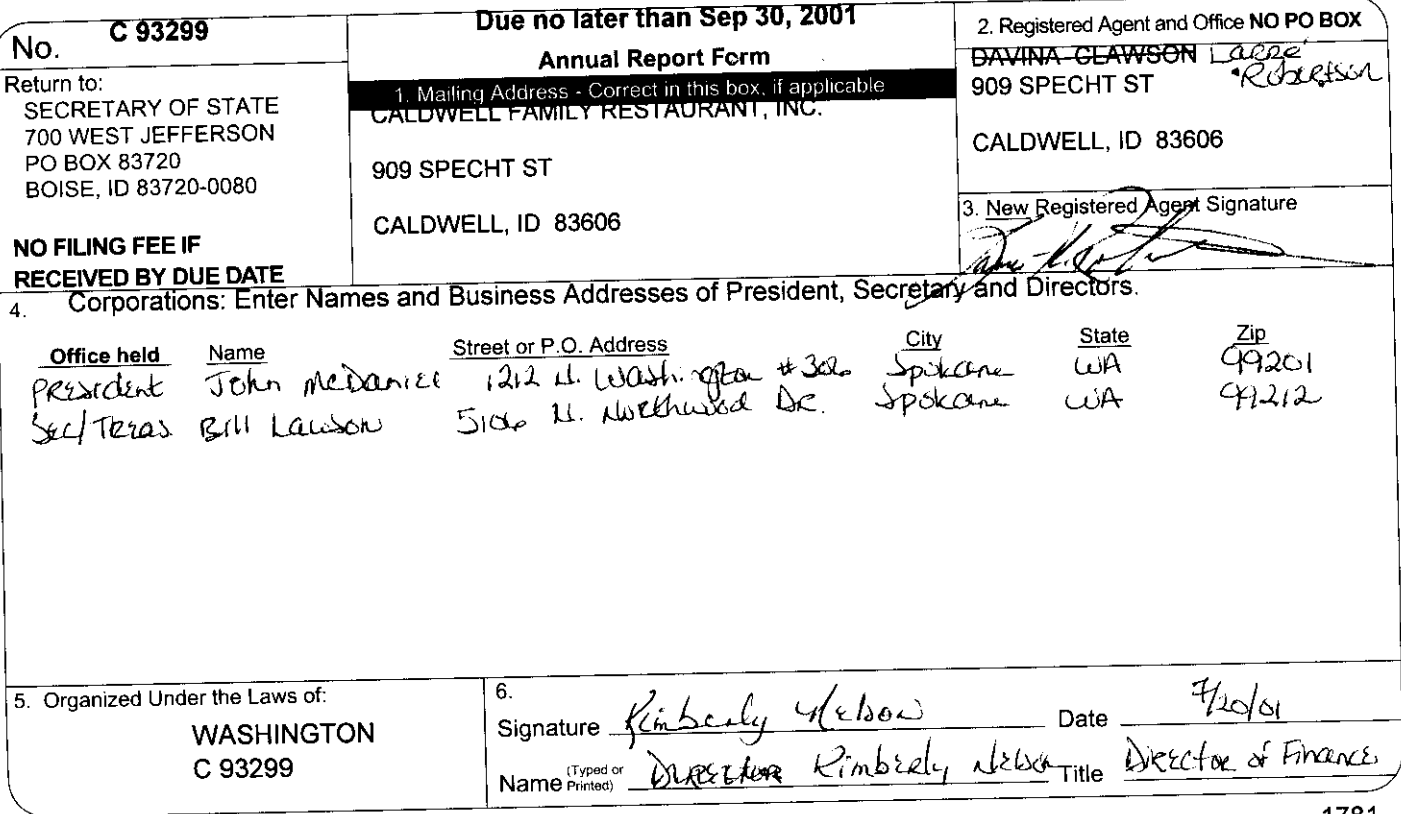 No. C 93299
Return to:
SECRETARY OF STATE
700 WEST JEFFERSON
PO BOX 83720
BOISE, ID 83720-0080
NO FILING FEE IF
RECEIVED BY DUE DATE
Due no later than Sep 30, 2001
Annual Report Form
1. Mailing Address - Correct in this box, if applicable
CALDWELL FAMILY RESTAURANT, INC.
909 SPECHT ST
CALDWELL, ID 83606
2. Registered Agent and Office NO PO BOX
DAVINA CLAWSON Larré
Robertson
909 SPECHT ST
CALDWELL, ID 83606
3. New Registered Agent Signature
4. Corporations: Enter Names and Business Addresses of President, Secretary and Directors.
Office held Name Street or P.O. Address City State Zip
President John McDaniel 1212 N. Washington #306 Spokane WA 99201
Sec/Treas Bill Lawson 5106 N. Northwood Dr. Spokane WA 99212
5. Organized Under the Laws of:
WASHINGTON
C 93299
6.
Signature Kimberly Nelson Date 7/20/01
Name (Typed or Printed) Kimberly Nelson Title Director of Finance
1781